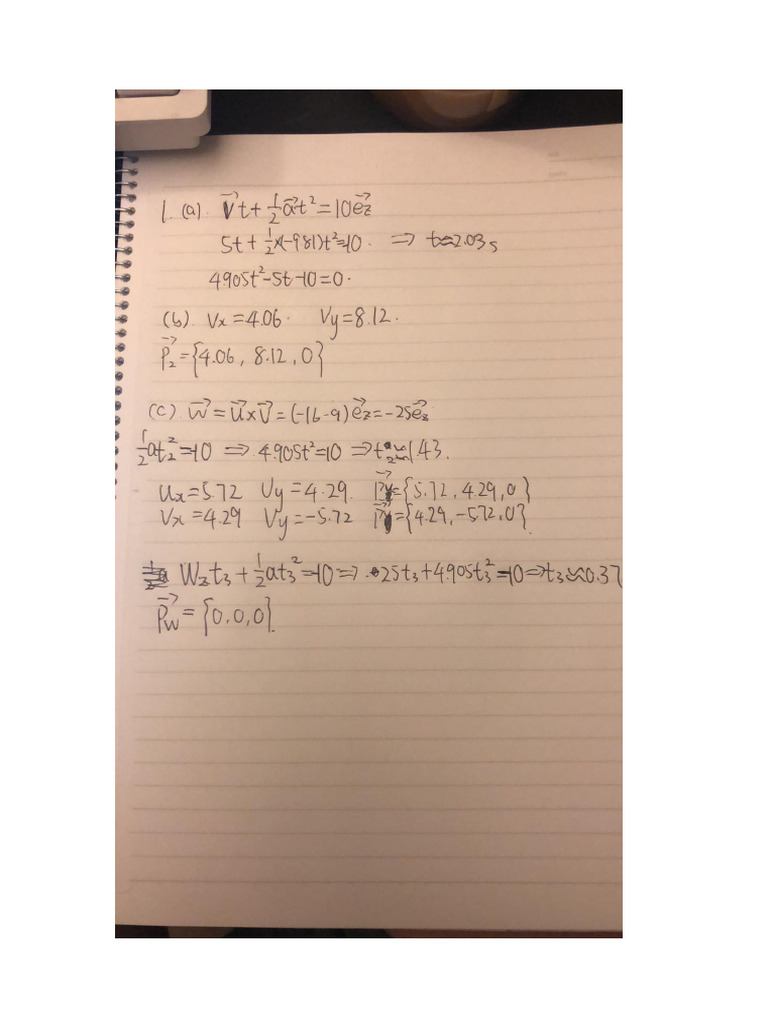 1. (a). v⃗t + ½a⃗t² = 10e⃗z
5t + ½×(-9.81)t² = 10. ⇒ t≈2.03s
4.905t² - 5t - 10 = 0.
(b). Vx = 4.06. Vy = 8.12.
P⃗₂ = {4.06, 8.12, 0}
(c) w⃗ = u⃗ × v⃗ = (-16-9)e⃗z = -25e⃗z
½at₂² = 10 ⇒ 4.905t² = 10 ⇒ t₂ ≈ 1.43.
Ux = 5.72 Uy = 4.29. P⃗ = {5.72, 4.29, 0}
Vx = 4.29 Vy = -5.72 P⃗ = {4.29, -5.72, 0}
Wzt₃ + ½at₃² = 10 ⇒ 25t₃ + 4.905t₃² = 10 ⇒ t₃ ≈ 0.37
P⃗w = {0, 0, 0}.